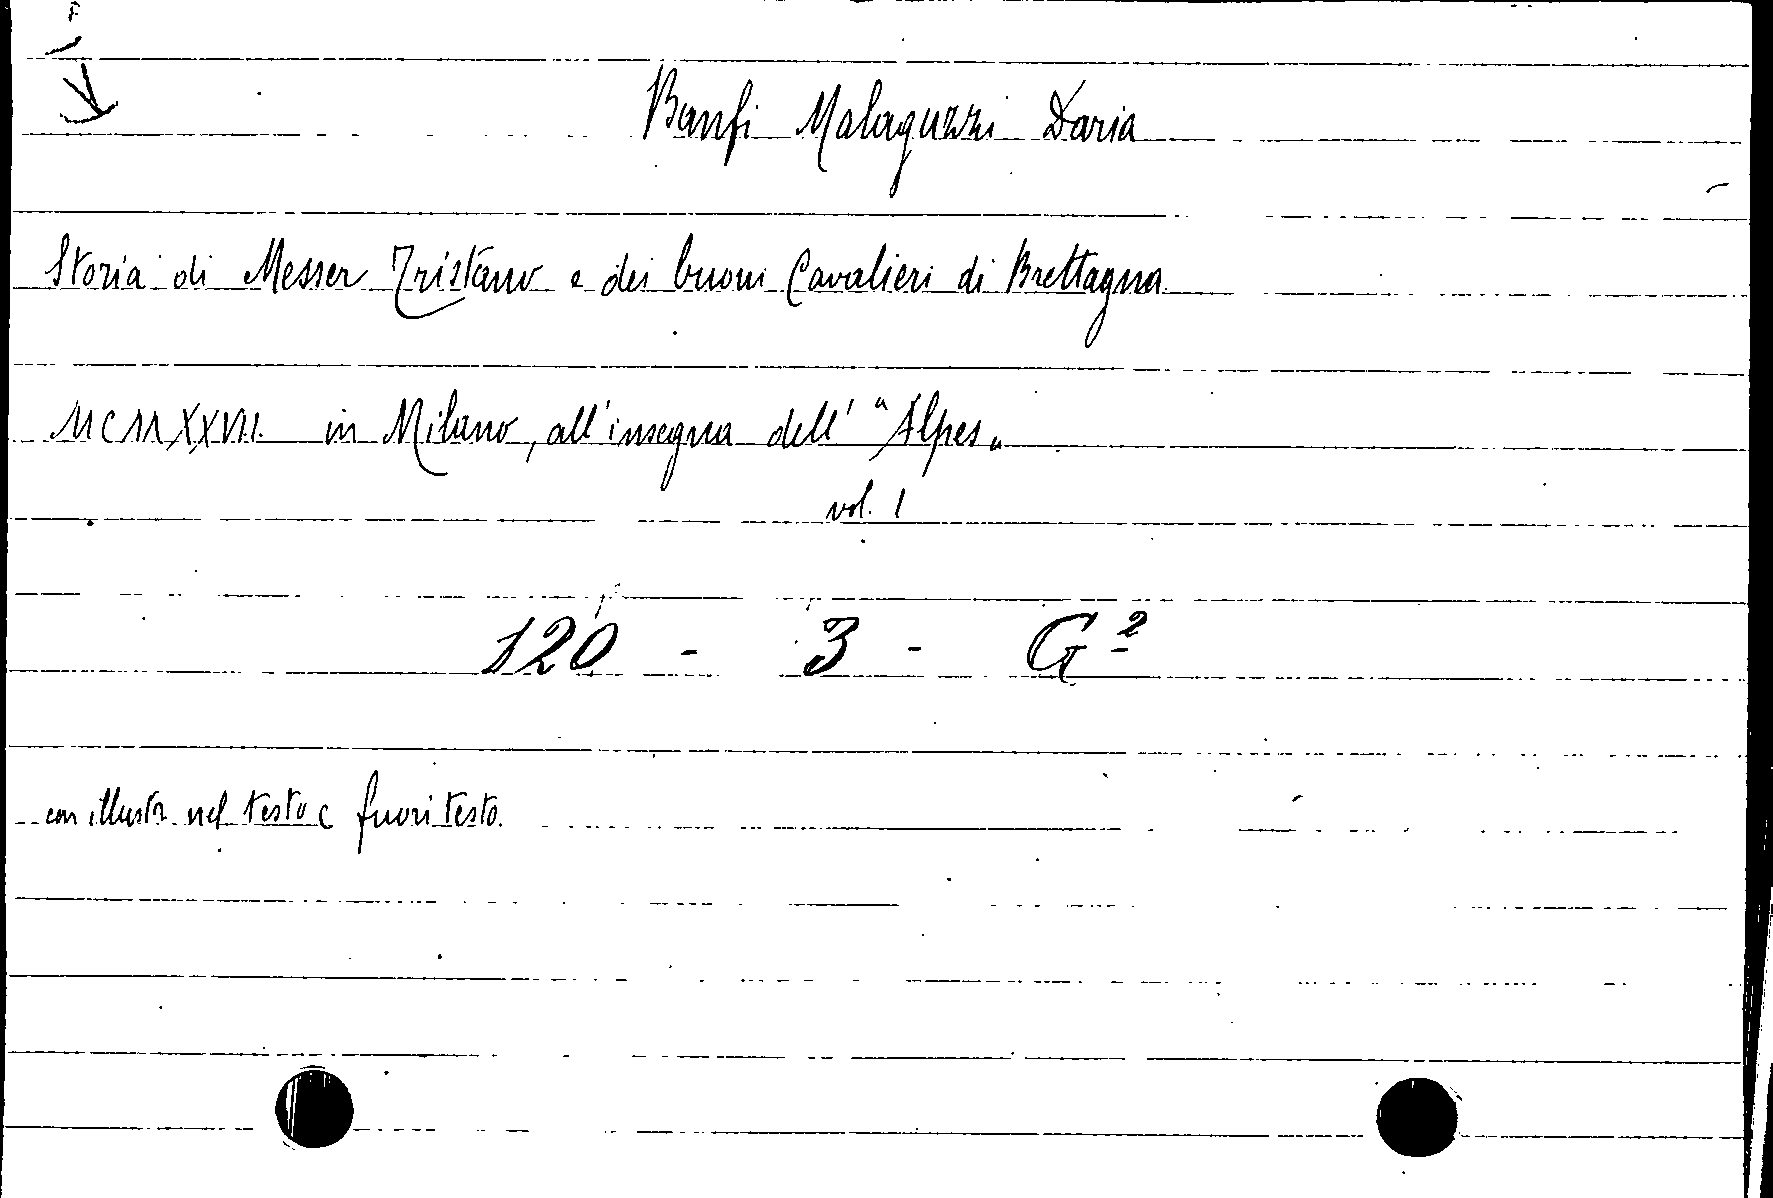 Banfi Malaguzzi Daria
Storia di Messer Tristano e dei buoni Cavalieri di Brettagna
in Milano, all'insegna dell' "Alpes"
vol. 1
120 - 3 - G²
con illustr. nel testo e fuori testo.